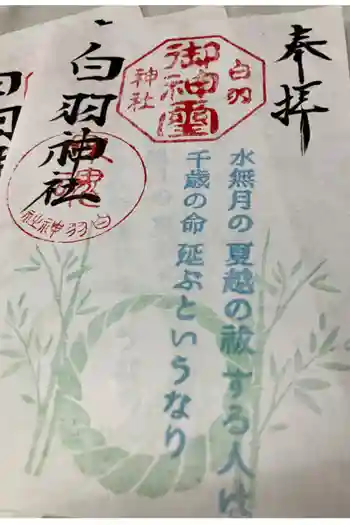 奉拝
白羽
御神璽
神社
水無月の夏越の祓する人は
千歳の命延ぶというなり
白羽神社
白羽神社